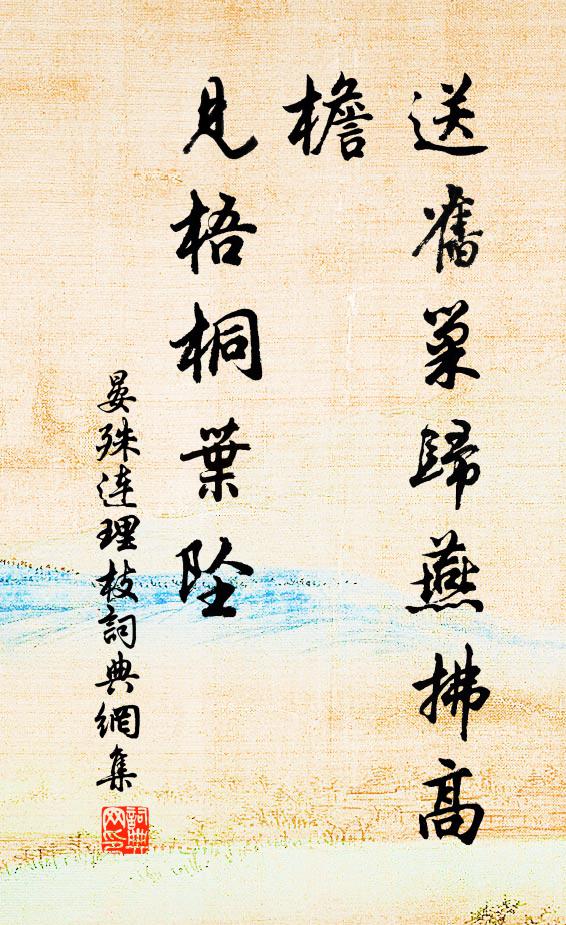 送舊巢歸燕拂高
檐
見梧桐葉墜
晏殊連理枝詞典網集
詞典網印